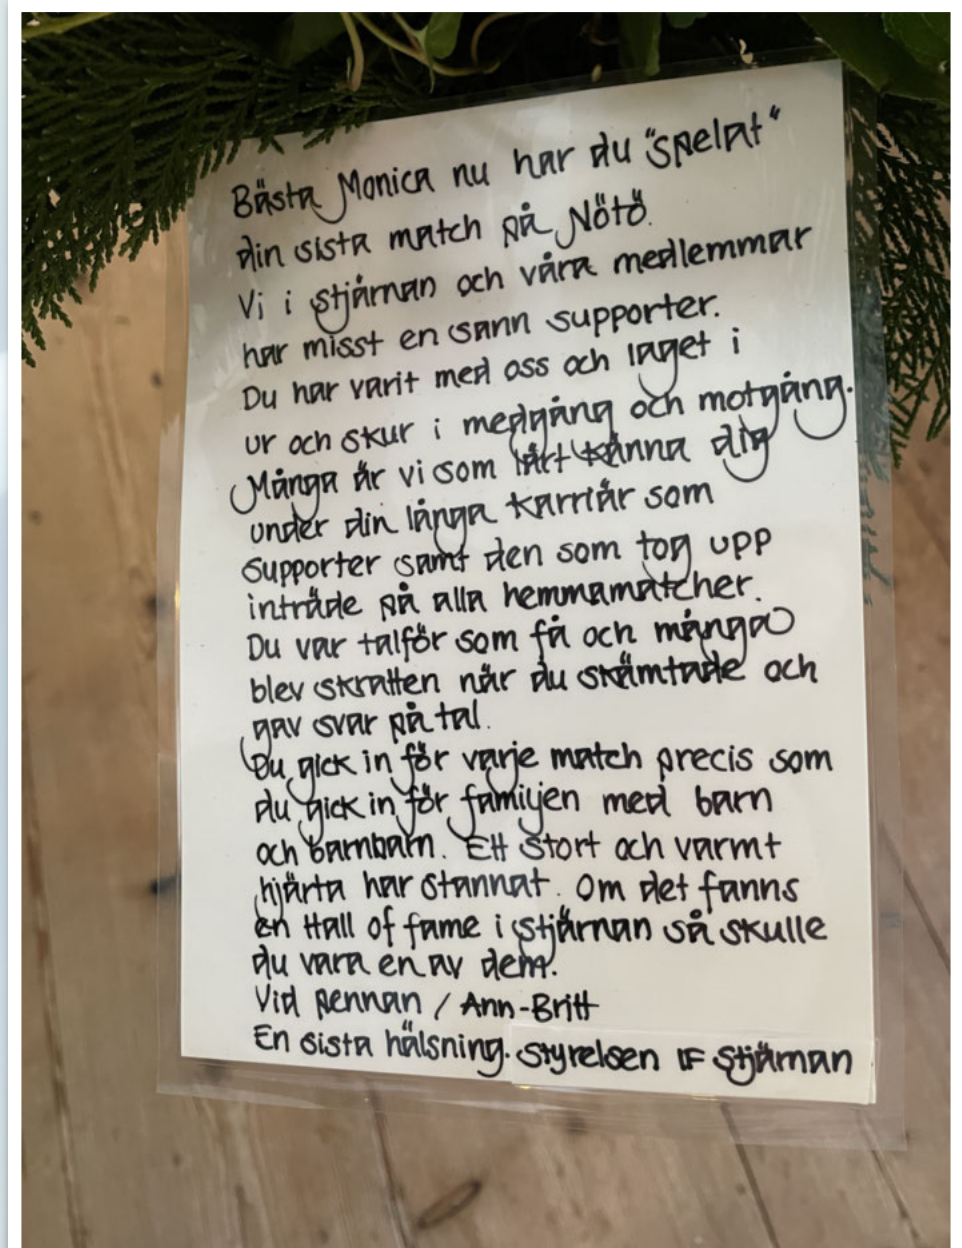 Bästa Monica nu har du "spelat"
din sista match på Nötö.
Vi i stjärnan och våra medlemmar
har misst en sann supporter.
Du har varit med oss och laget i
ur och skur i medgång och motgång.
Många är vi som lärt känna dig
under din långa karriär som
supporter samt den som tog upp
inträde på alla hemmamatcher.
Du var talför som få och många
blev skratten när du skämtade och
gav svar på tal.
Du gick in för varje match precis som
du gick in för familjen med barn
och barnbarn. Ett stort och varmt
hjärta har stannat. Om det fanns
en Hall of fame i stjärnan så skulle
du vara en av dem.
Vid pennan / Ann-Britt
En sista hälsning. Styrelsen IF Stjärnan